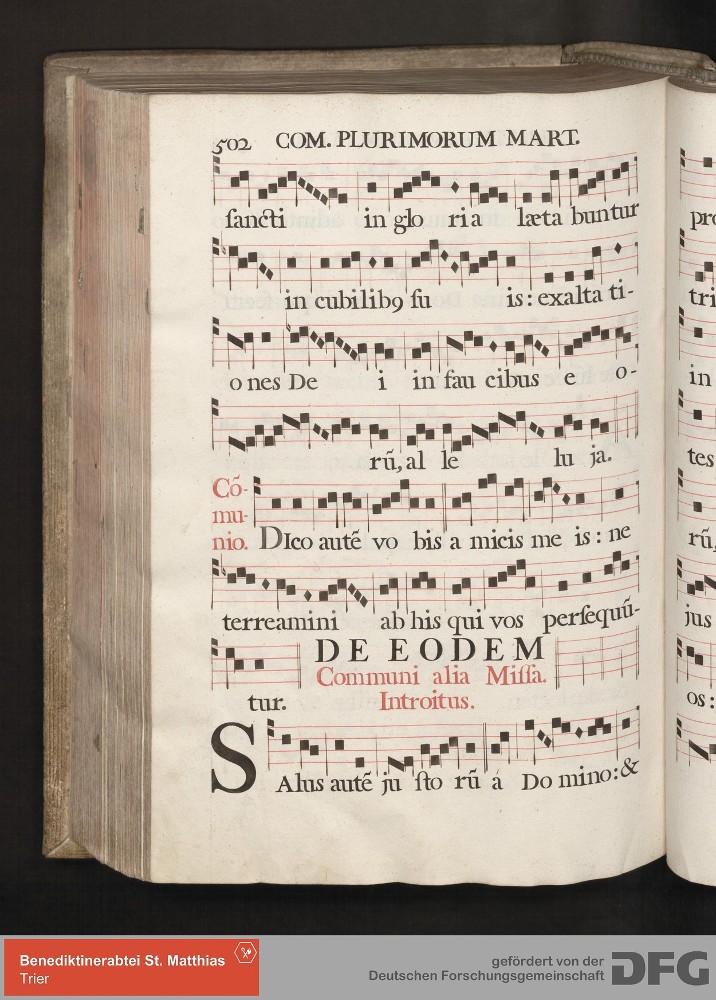 502 COM. PLURIMORUM MART.
sancti in glo ria læta buntur
in cubilib9 su is: exalta ti-
o nes De i in fau cibus e o-
rũ, al le lu ja.
Cõ-
mu-
nio. DIco autẽ vo bis a micis me is: ne
terreamini ab his qui vos persequũ-
DE EODEM
Communi alia Missa.
tur. Introitus.
SAlus autẽ ju sto rũ á Do mino: &
pro
tri
in
tes
rũ,
jus
os:
Benediktinerabtei St. Matthias
Trier
gefördert von der
Deutschen Forschungsgemeinschaft
DFG